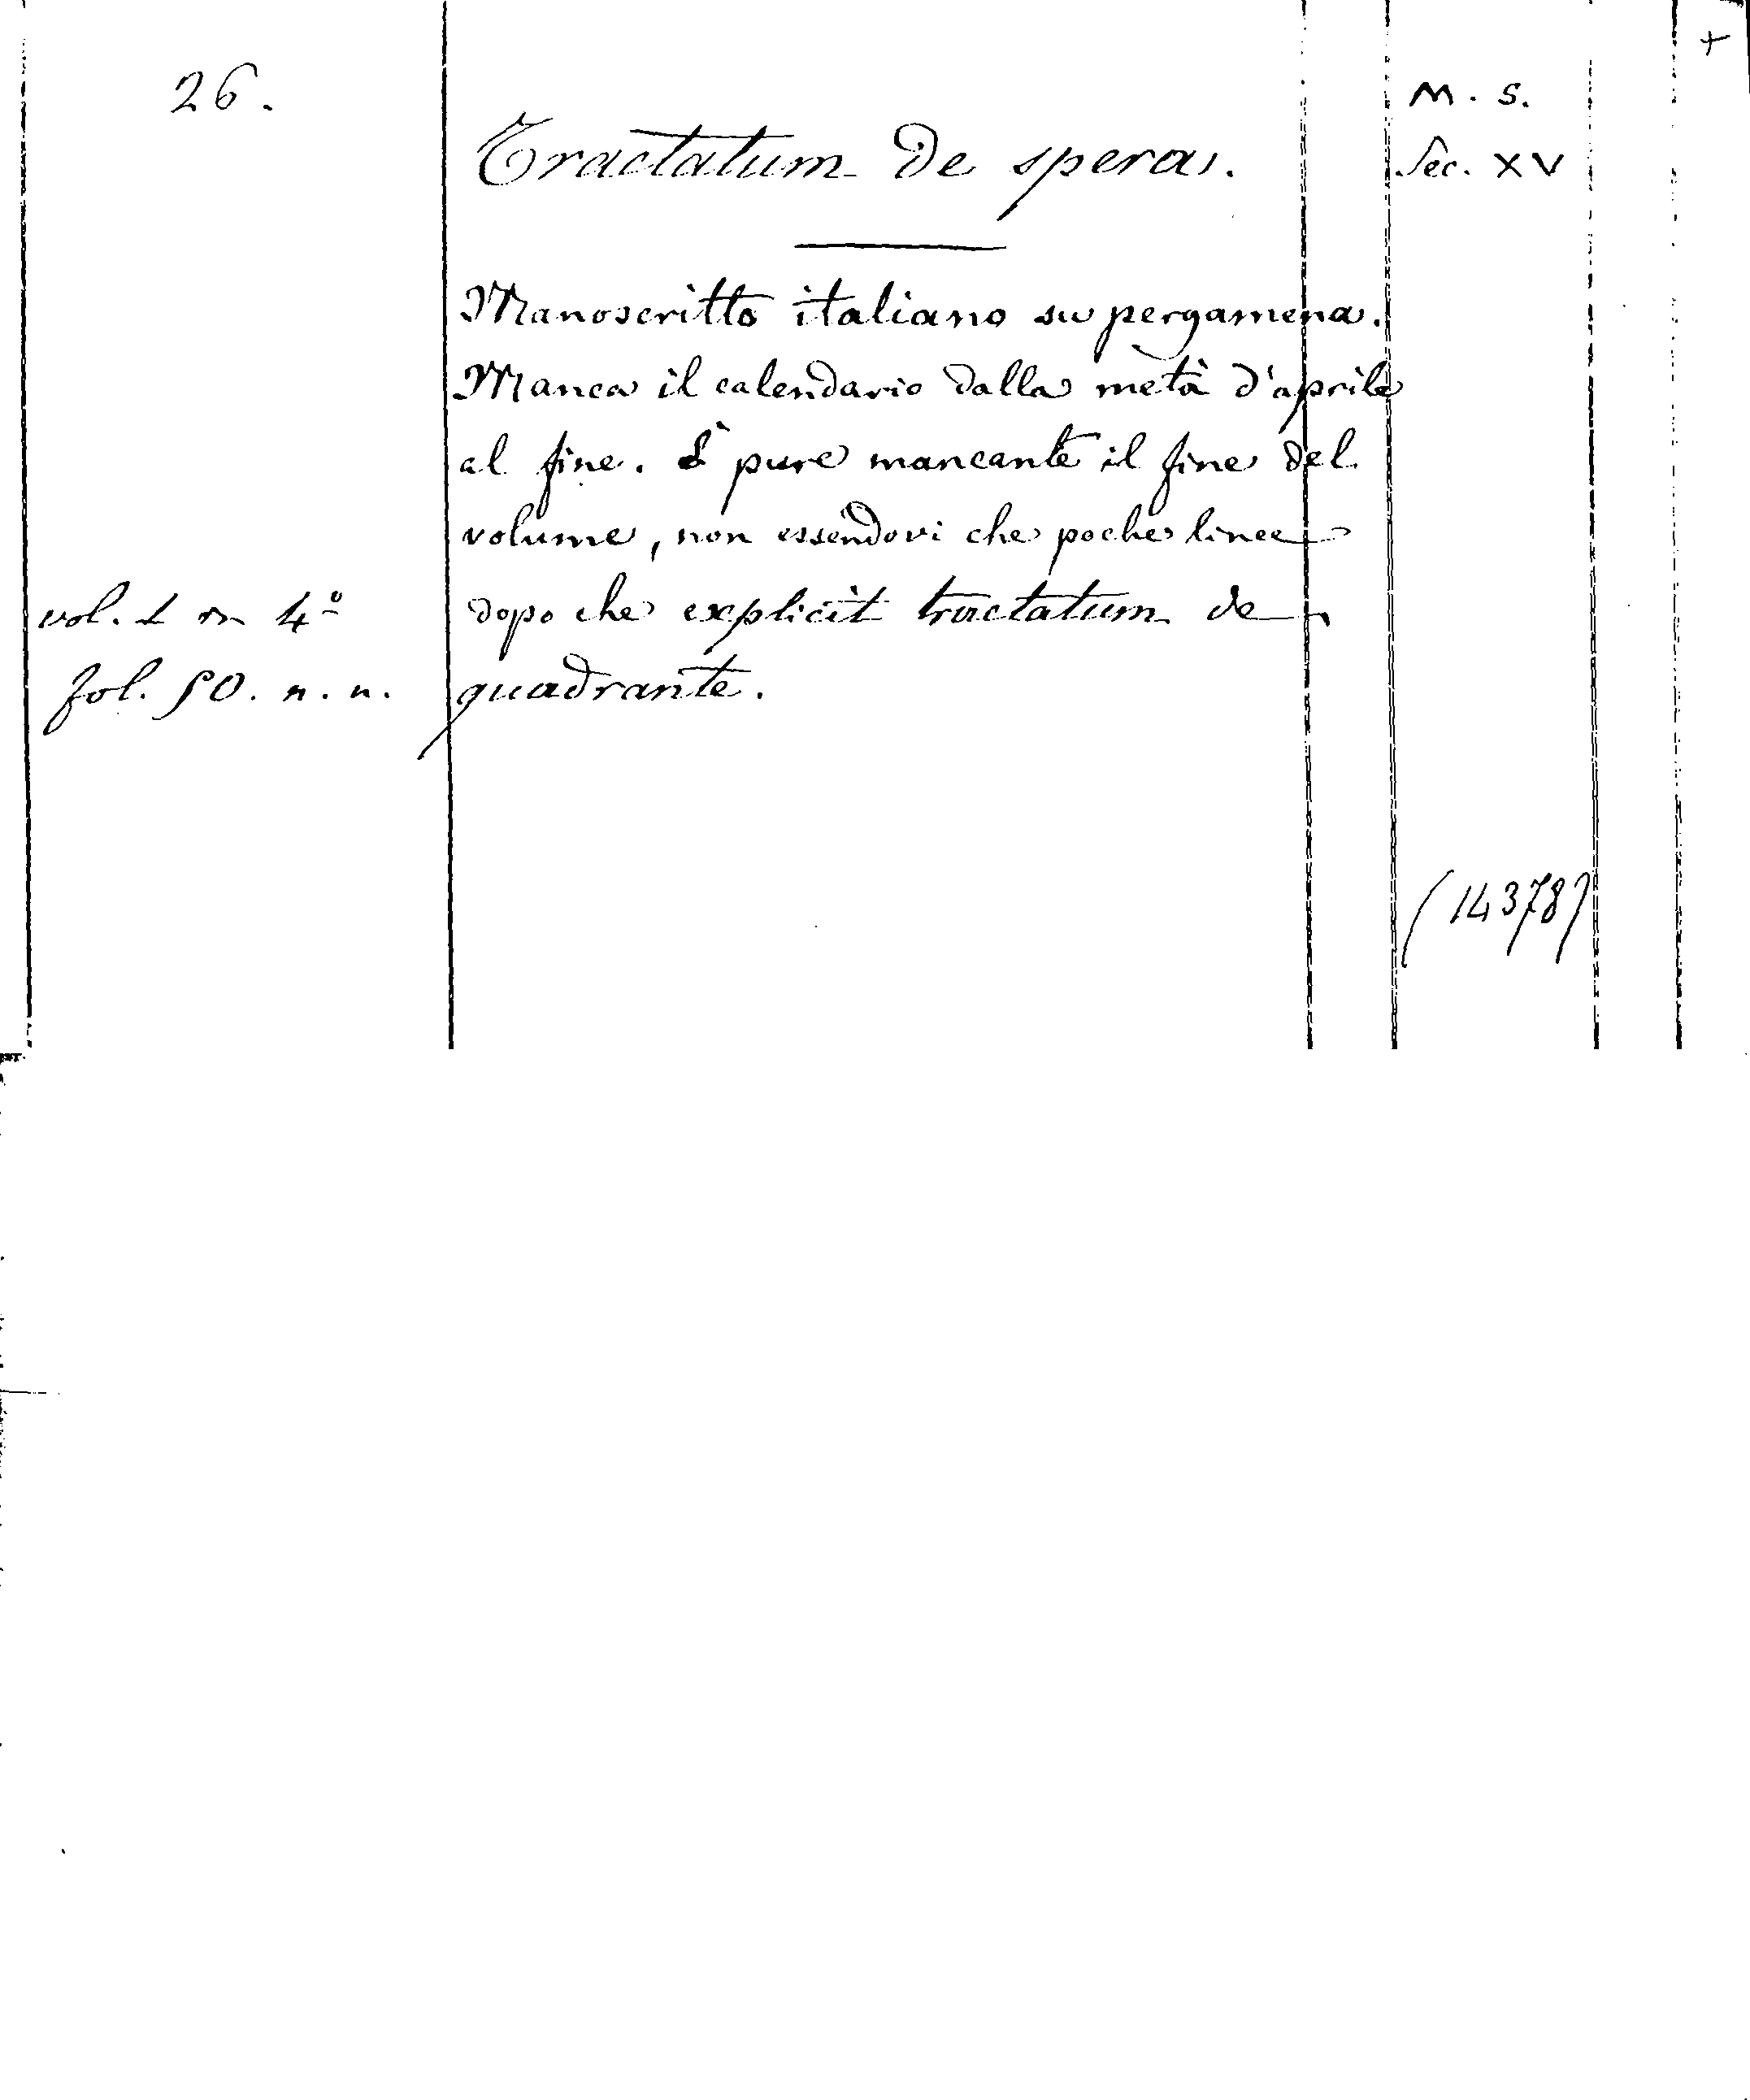 +
26.
M. S.
Tractatum de spera.
Sec. XV
Manoscritto italiano su pergamena.
Manca il calendario dalla metà d'aprile
al fine. È pure mancante il fine del
volume, non essendovi che poche linee
vol. 1 in 4º
dopo che explicit tractatum de
fol. 50. n. n.
quadrante.
(14378)